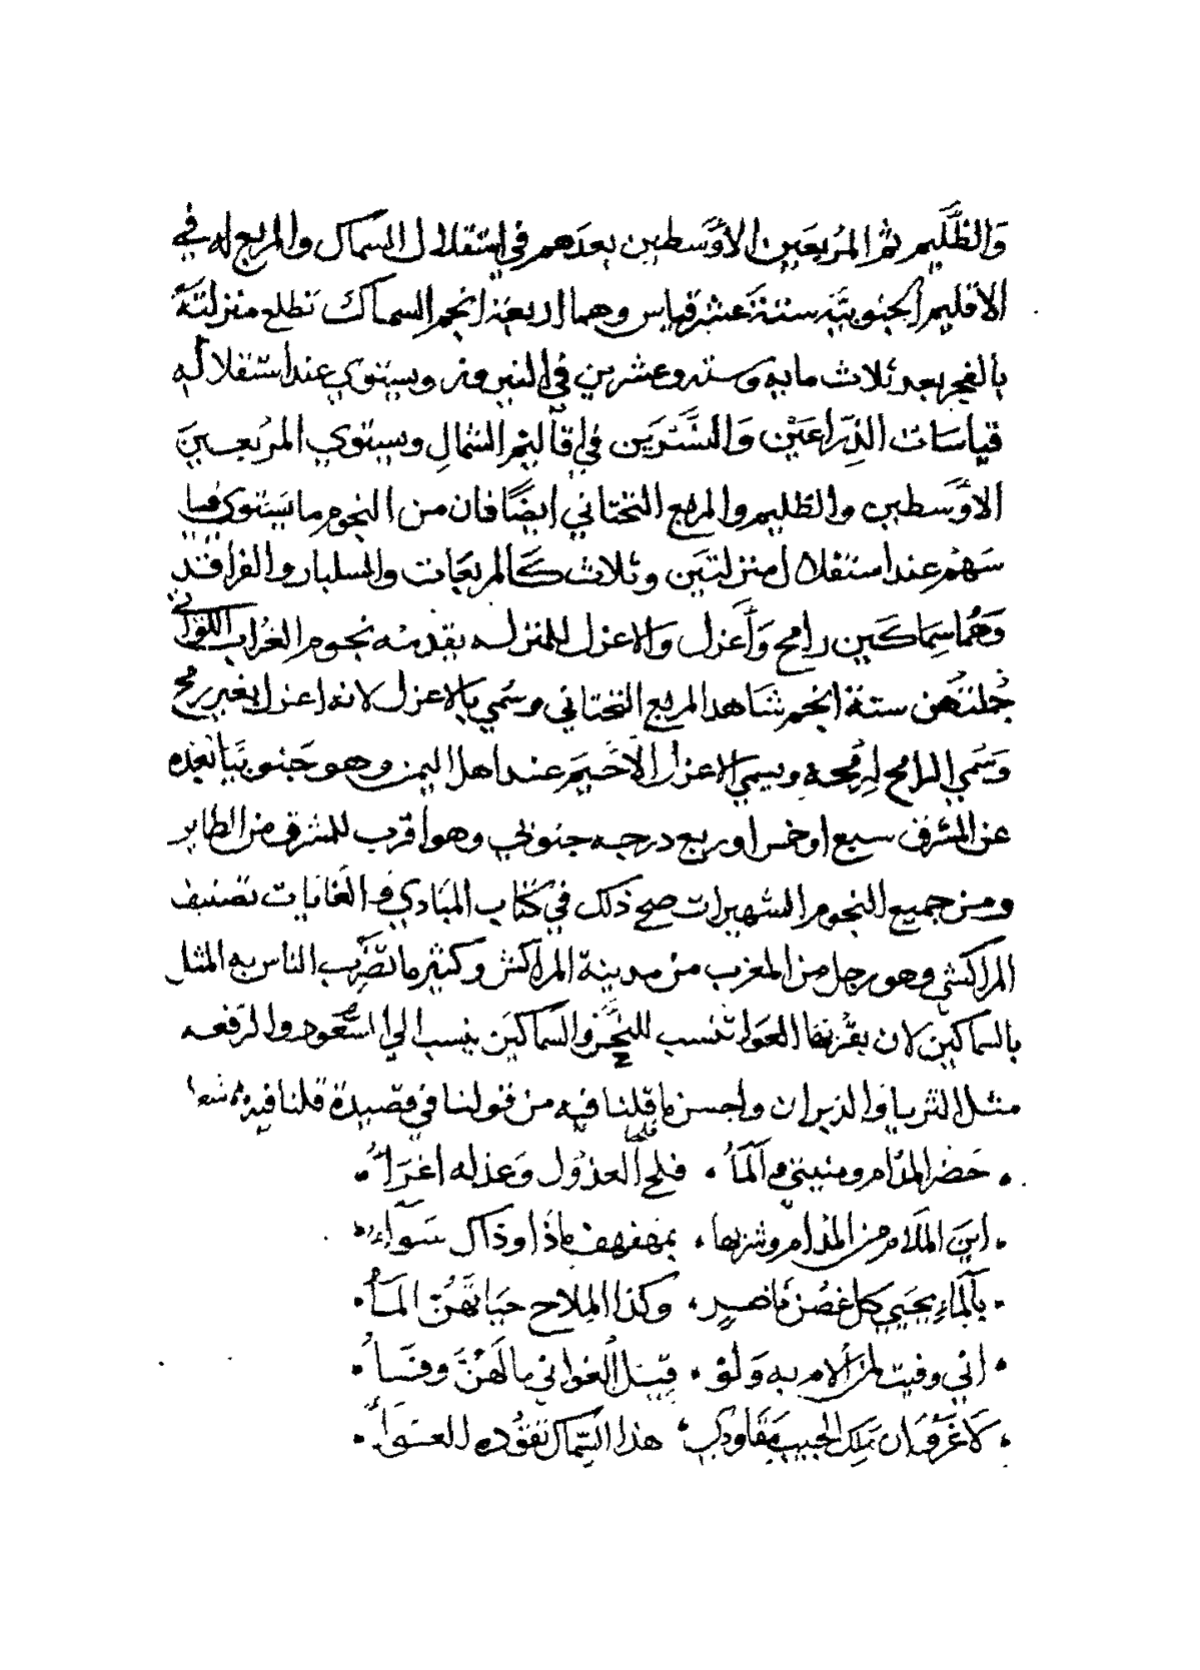 وَالظَّلِيم ثم المُربعَين الأوَسطين بعدَهم في استقلال السماك والمربع له في
الاقليم الجنوبيَّة ستة عَشر قياس وهما اربعة انجم السماك تطلع منزلتَهَ
بالفجر بعد ثلاث مايه وسته وعشرين في النيروز ويستوي عند استقلاله
قياسَات الذِرَاعَيْن وَالنَّسَّرَين في اقاليم الشمالِ ويستوي المربعَين
الاوَسطين والظليم والمربع التحتاني ايضًا فان من النجوم ما يَستوي فيها
سَهْم عند استقلال منزلتَين وثلاث كَالمربعَات والسلبار والفراقد
وَهُمَا سِمَاكَين رامح وَأَعزل والاعزل للمنزله يقدمُه نجوم الغُراب اللواتي
جُملتهُن ستة انجم شَاهد المربع التحتاني وسُمي بالاعزل لانه اعزل بغير رمح
وَسُمي الرامح لِرُمحه ويسمي الاعزل الاحَيمَر عند اهل اليمن وهو جَنوبيًا بُعده
عن المشرق سبع او خمس او ربع درجه جنوبي وهو اقرب للمشرق من الطاير
ومن جميع النجوم الشهيرات صح ذلك في كتاب المبَادي والغايات تصنيف
المراكشي وهو رجل من المغرب من مدينة المراكش وكثير ما تضرِب الناس به المثل
بالسماكين لان يقرنها العَوا تنسب للنحس والسماكَين ينسب الي السُّعَود والرفعه
مثل الثريا والدبران واحسن ما قلنا فيه من قولنا في قصيدة قلنا فيه شعرا
حَضَر المدَام ومنيتي والمَآءُ ، فلحَ العذوُل وَعذله اغرَاءُ
اينَ المَلَام من المدَام وشربها ، بمهفهف ماذَا وذاك سَوآءُ
بالَمآءِ يحيَي كل غصُن ناضرٍ ، وكذا المِلاح حيَاتَهُنّ المَآءُ
اني وفيت لمن أُلام به وَلوْ ، قيل الغواني ما لَهُنَّ وفَآءُ
لَا غَرْوَ ان ملك الحبيب مقَاودي ، هذا السِّماك تقوُده العَوّآءُ